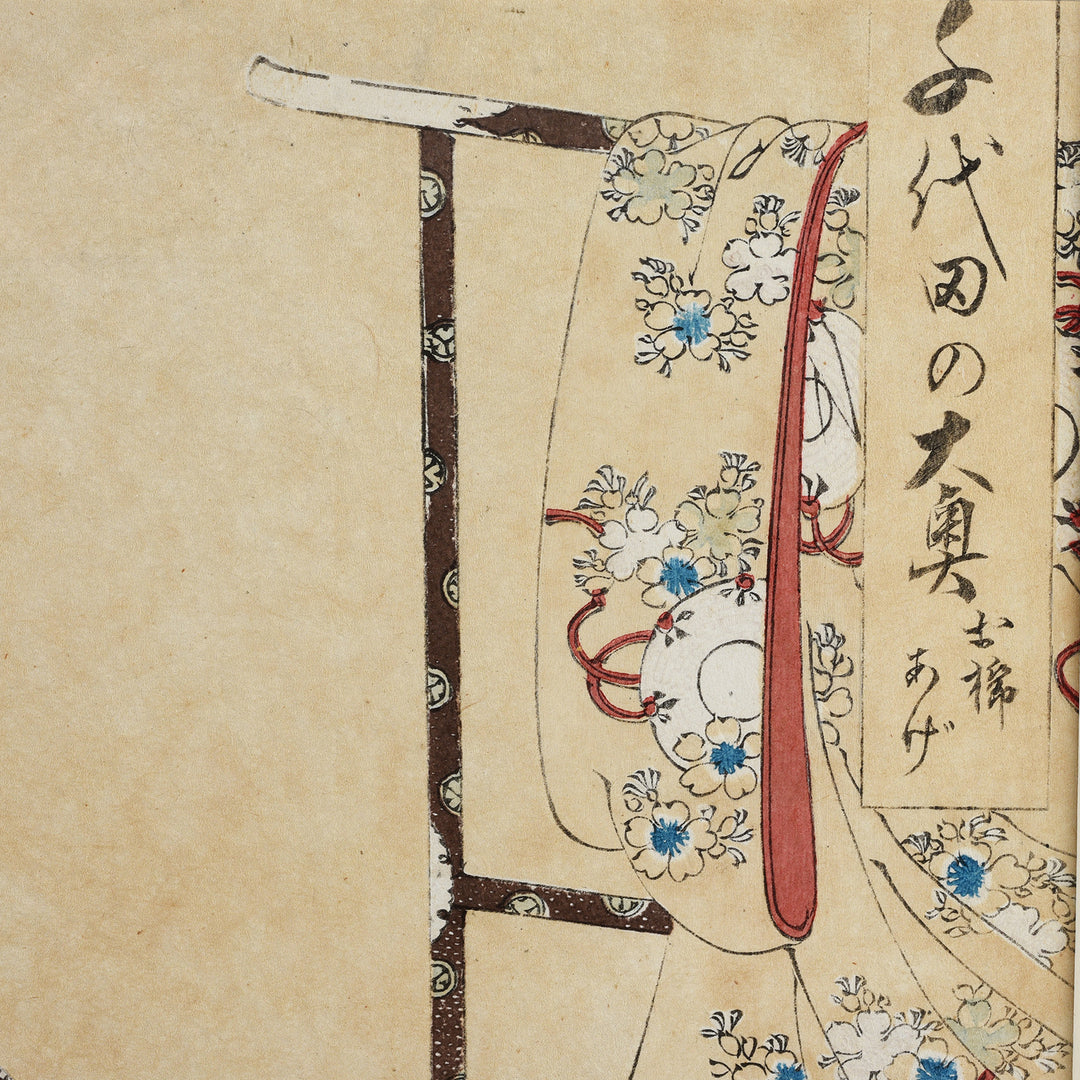 千代田の大奥
お櫛
あげ